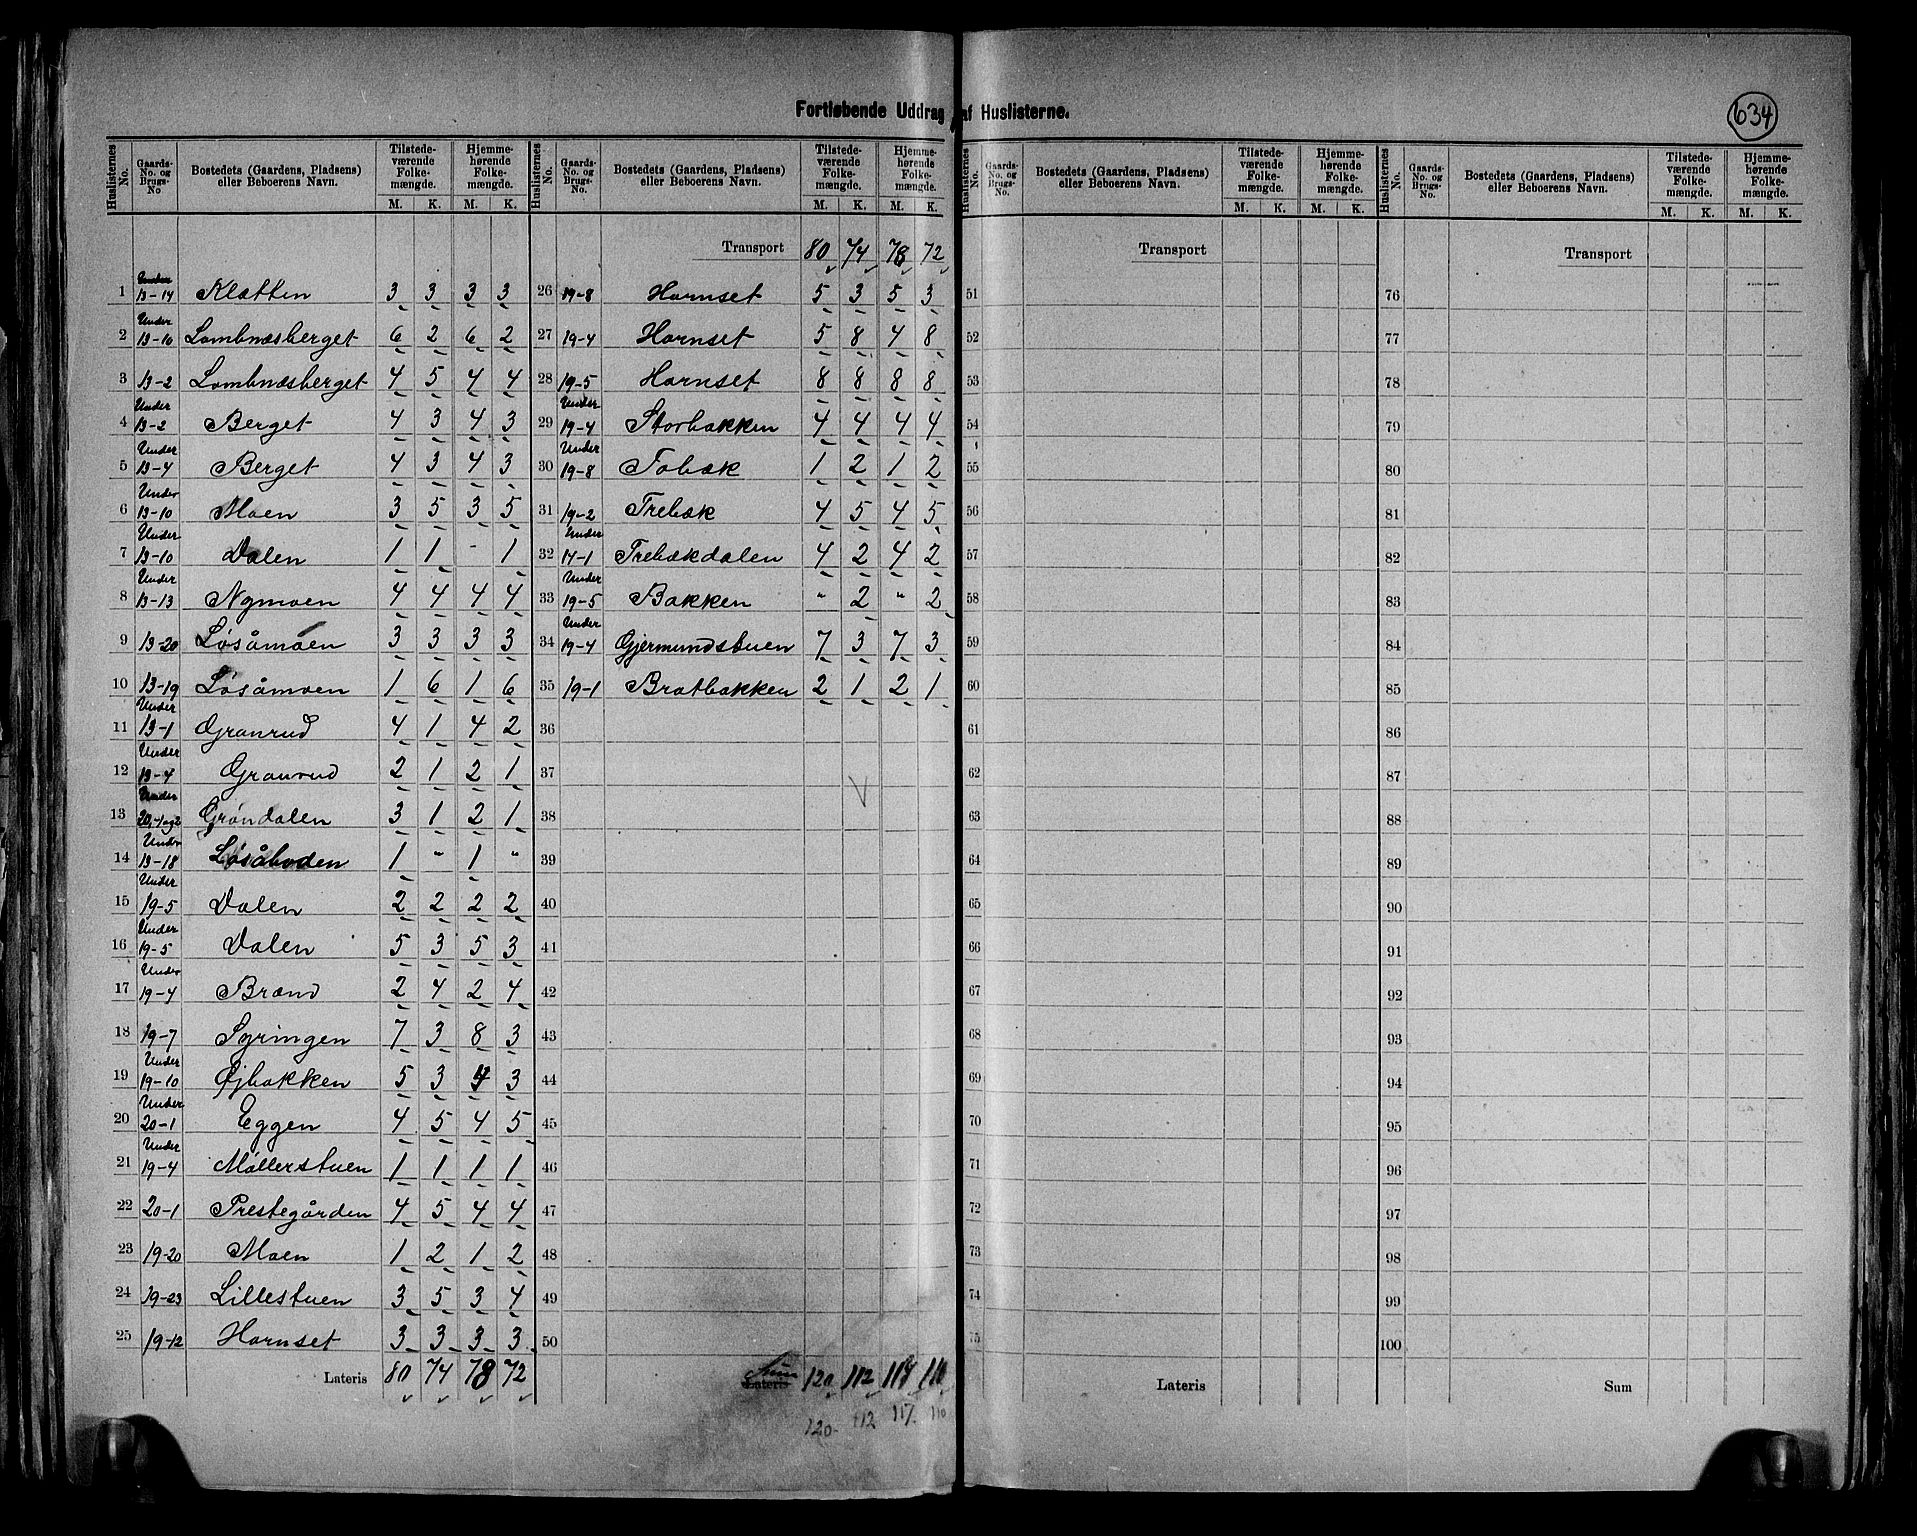 634
Fortløbende Uddrag af Huslisterne.
Huslisternes No. | Gaards-No. og Brugs-No | Bostedets (Gaardens, Pladsens) eller Beboerens Navn. | Tilstedeværende Folkemængde. M. K. | Hjemmehørende Folkemængde. M. K.
1 Under 13-14 Klatten 3 3 3 3
2 Under 13-10 Lombnæsberget 6 2 6 2
3 13-2 Lombnæsberget 4 5 4 4
4 Under 13-2 Berget 4 3 4 3
5 Under 13-4 Berget 4 3 4 3
6 Under 13-10 Moen 3 5 3 5
7 Under 13-10 Dalen 1 1 - 1
8 Under 13-13 Nymoen 4 4 4 4
9 13-20 Løsåmoen 3 3 3 3
10 13-19 Løsåmoen 1 6 1 6
11 Under 13-1 Granrud 4 1 4 2
12 Under 13-4 Granrud 2 1 2 1
13 Under 20,-1og2 Grøndalen 3 1 2 1
14 Under 13-18 Løsåboden 1 " 1 "
15 Under 19-5 Dalen 2 2 2 2
16 Under 19-5 Dalen 5 3 5 3
17 Under 19-4 Brænd 2 4 2 4
18 19-7 Syringen 7 3 8 3
19 Under 19-10 Øjbakken 5 3 4 3
20 Under 20-1 Eggen 4 5 4 5
21 Under 19-4 Møllerstuen 1 1 1 1
22 20-1 Prestegården 4 5 4 4
23 19-20 Moen 1 2 1 2
24 19-23 Lillestuen 3 5 3 4
25 19-12 Harnset 3 3 3 3
Lateris 80 74 78 72
Huslisternes No. | Gaards-No. og Brugs-No. | Bostedets (Gaardens, Pladsens) eller Beboerens Navn. | Tilstedeværende Folkemængde. M. K. | Hjemmehørende Folkemængde. M. K.
Transport 80 74 78 72
26 19-8 Harnset 5 3 5 3
27 19-4 Harnset 5 8 4 8
28 19-5 Harnset 8 8 8 8
29 Under 19-4 Storbakken 4 4 4 4
30 Under 19-8 Tobæk 1 2 1 2
31 19-2 Trebæk 4 5 4 5
32 Under 14-1 Trebækdalen 4 2 4 2
33 Under 19-5 Bakken " 2 " 2
34 Under 19-4 Gjermundstuen 7 3 7 3
35 19-1 Bratbakken 2 1 2 1
36
37
38
39
40
41
42
43
44
45
46
47
48
49
50
Sum Lateris 120 112 110
120. 112 117. 110
Huslisternes No. | Gaards-No. og Brugs-No. | Bostedets (Gaardens, Pladsens) eller Beboerens Navn. | Tilstedeværende Folkemængde. M. K. | Hjemmehørende Folkemængde. M. K.
Transport
51
52
53
54
55
56
57
58
59
60
61
62
63
64
65
66
67
68
69
70
71
72
73
74
75
Lateris
Huslisternes No. | Gaards-No. og Brugs-No. | Bostedets (Gaardens, Pladsens) eller Beboerens Navn. | Tilstedeværende Folkemængde. M. K. | Hjemmehørende Folkemængde. M. K.
Transport
76
77
78
79
80
81
82
83
84
85
86
87
88
89
90
91
92
93
94
95
96
97
98
99
100
Sum